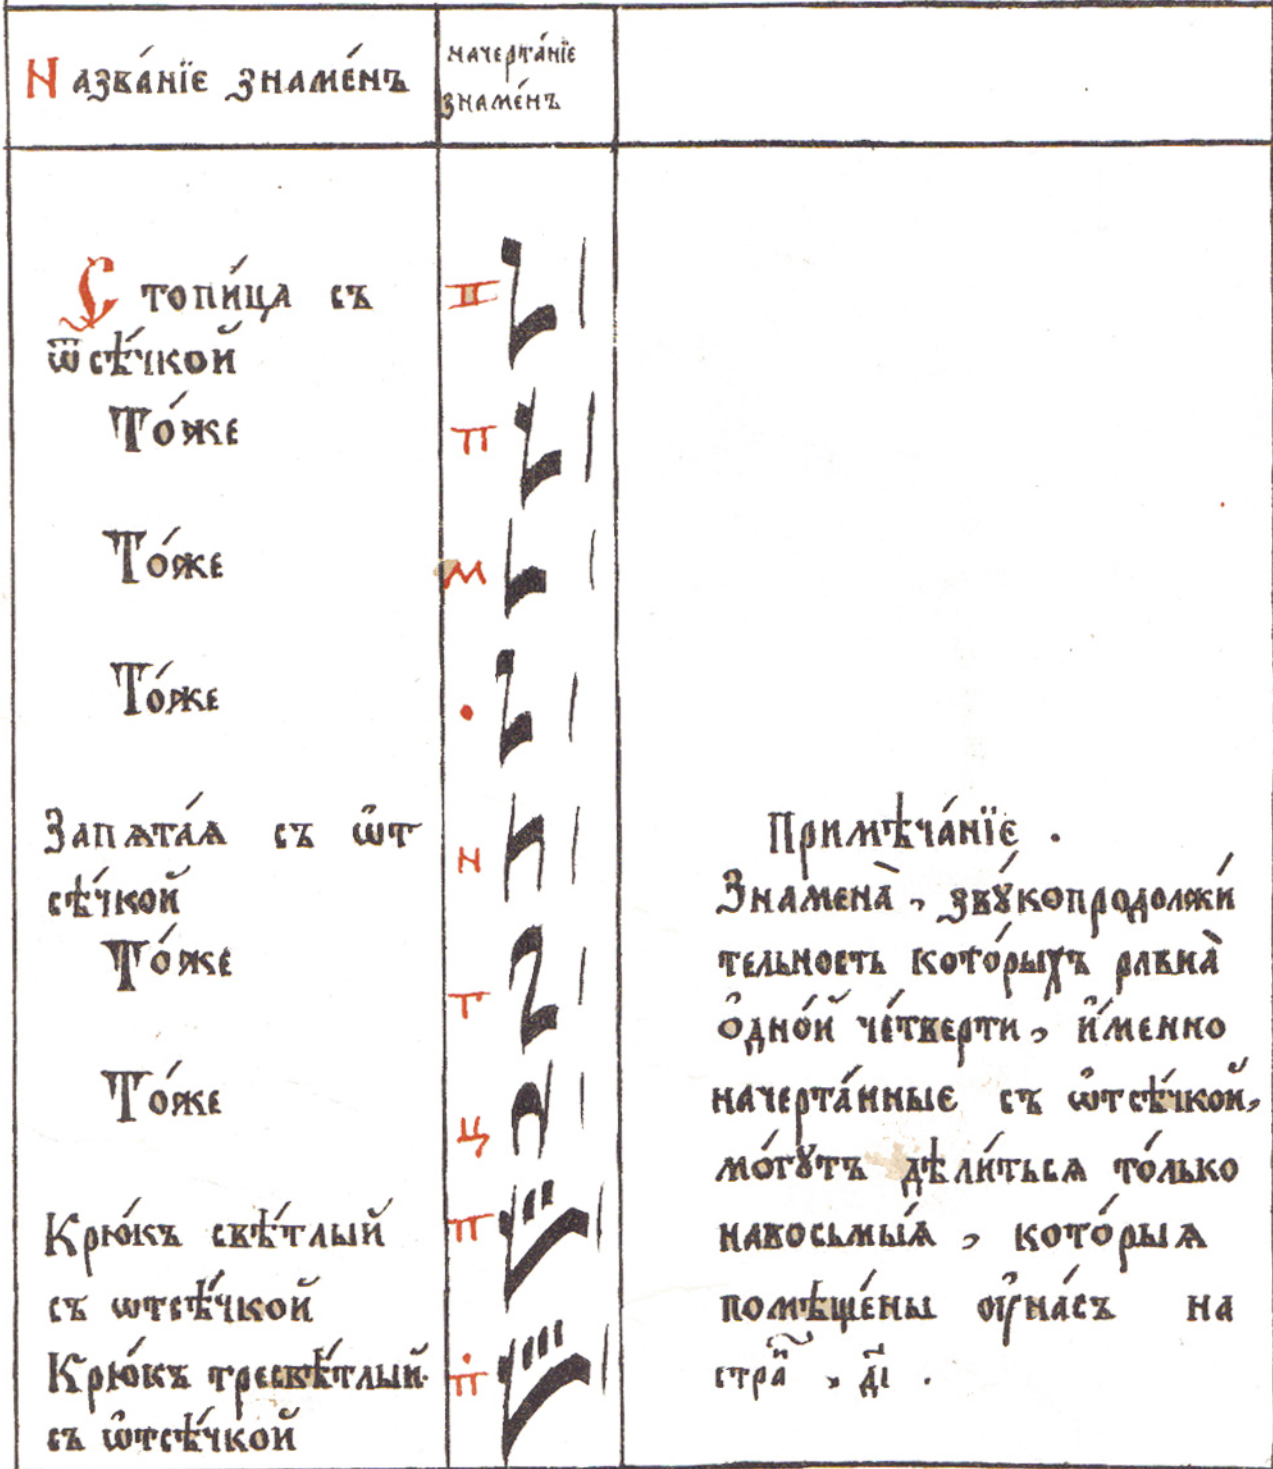 Назва́нїе знаме́нъ
начерта́нїе
знаме́нъ
Стопи́ца съ
ѿсѣ́чкой
То́же
П
То́же
П
То́же
М
То́же
Запѧта́ѧ съ ѡ҆т
сѣ́чкой
Н
То́же
Т
То́же
Ц
Крю́къ свѣ́тлый
съ ѡтсѣ́чкой
П
Крю́къ тресвѣ́тлый
съ ѡ҆тсѣ́чкой
П
Примѣча́нїе .
Знамена̀ , звꙋ́копродолжи́
тельность кото́рыхъ равна̀
о҆дно́й че́тверти , и҆́менно
начерта́нные съ ѡ҆тсѣ́чкой,
мо́гꙋтъ дѣли́тьсѧ то́лько
навосьмы́ѧ , кото́рыѧ
помѣще́ны ᲂу҆на́съ на
страⷩ҇ , д҃і .